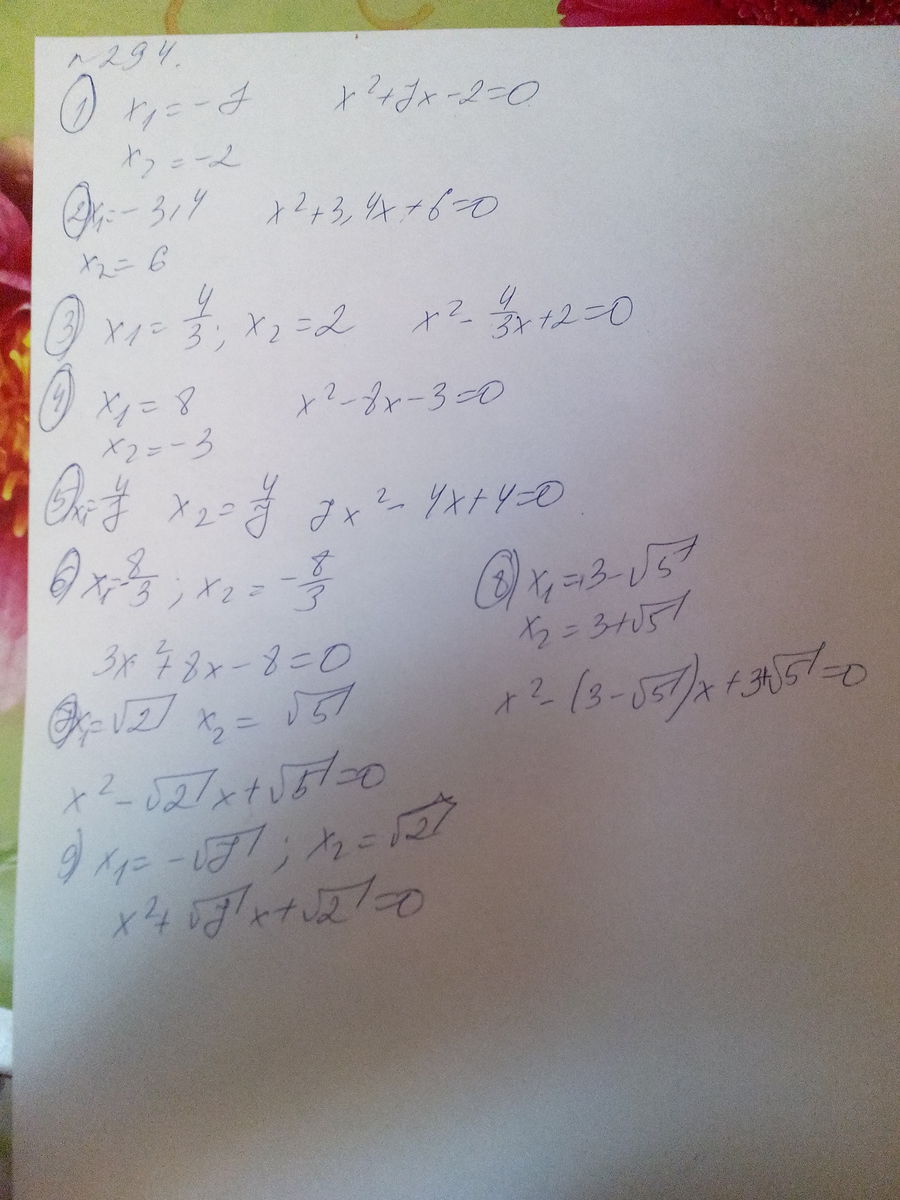 №294.
① x₁=-7 x²+7x-2=0
x₂=-2
② x₁=-3,4 x²+3,4x+6=0
x₂=6
③ x₁=4/3; x₂=2 x²-4/3x+2=0
④ x₁=8 x²-8x-3=0
x₂=-3
⑤ x₁=4/7 x₂=4/7 7x²-4x+4=0
⑥ x₁=-8/3; x₂=-8/3
3x²+8x-8=0
⑦ x₁=√2 x₂=√5
x²-√2x+√5=0
⑧ x₁=3-√5
x₂=3+√5
x²-(3-√5)x+3+√5=0
9) x₁=-√7; x₂=√2
x²+√7x+√2=0